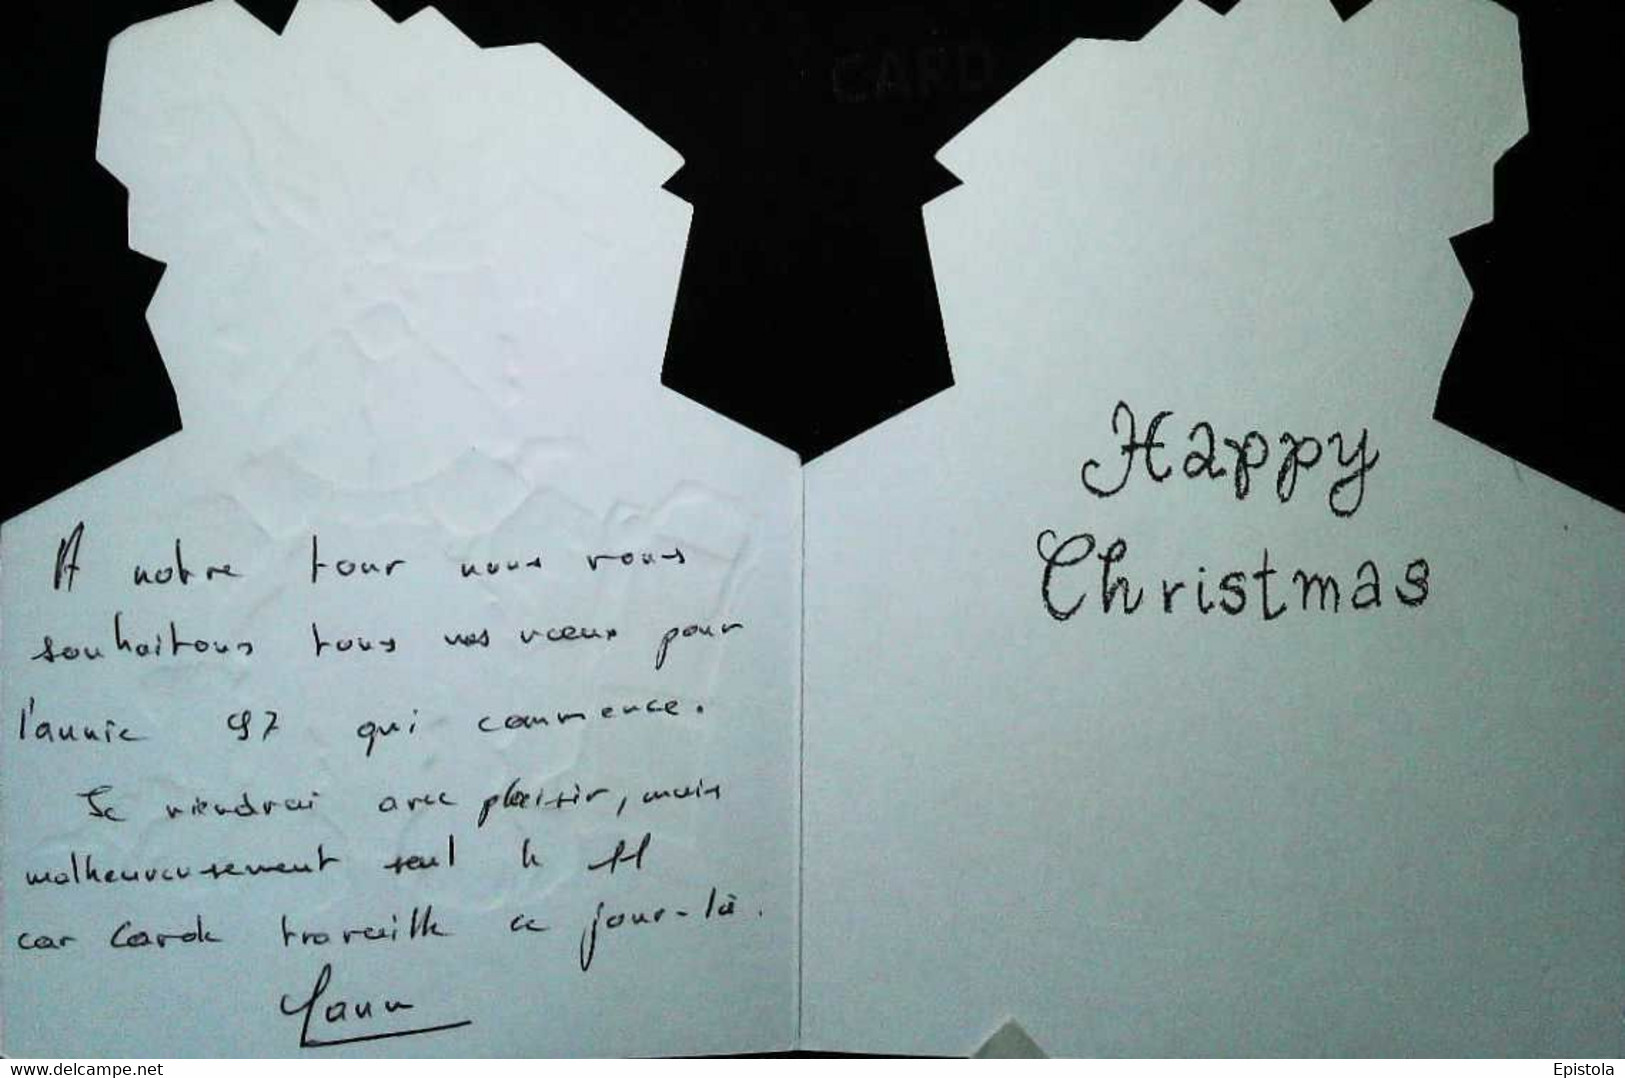 A notre tour nous vous
souhaitons tous nos vœux pour
l'année 97 qui commence.
Je viendrai avec plaisir, mais
malheureusement seul le 11
car Carole travaille ce jour-là.
Yann
Happy
Christmas
CARD
delcampe.net
Epistola